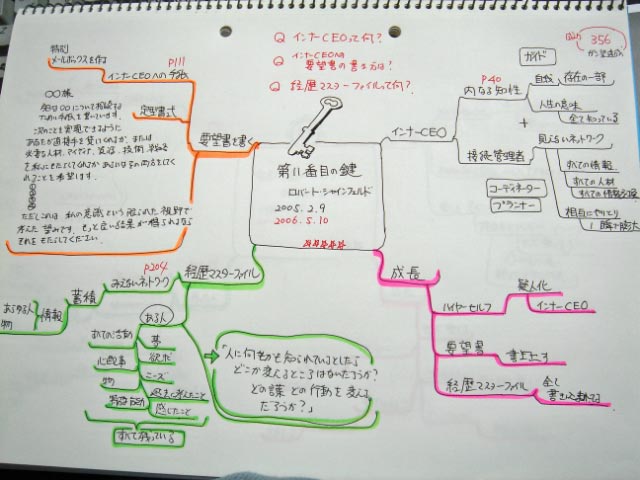 Q インナーCEOって何?
Q インナーCEOへの
要望書の書き方は?
Q 経歴マスターファイルって何?
356
第11番目の鍵
ロバート・シャインフェルド
2005.2.9
2006.5.10
特定
メールボックスを作る
P111
インナーCEOへの手紙
定型書式
要望書を書く
〇〇様
ただしこれは、私の意識という限られた視野で
考えた望みです。もっと良い結果が得られるなら
それをもたらしてください。
インナーCEO
P40
内なる知性
ガイド
自我
存在の一部
人生の意味
全て知っている
+
接続管理者
コーディネーター
プランナー
見えないネットワーク
すべての情報
すべての人材
すべての情報交換
相互にやりとり
成長
ハイヤーセルフ
擬人化
インナーCEO
要望書
書き出す
経歴マスターファイル
全て
経歴マスターファイル
P204
みえないネットワーク
蓄積
情報
あらゆる人
物
ある人
すべての活動
心配事
物
夢
欲求
ニーズ
考えたこと
感じたこと
すべて残っている
「人に何もかも知られているとしたら
どこか変えるところはないだろうか?
どの言葉 どの行動を変える
だろうか?」